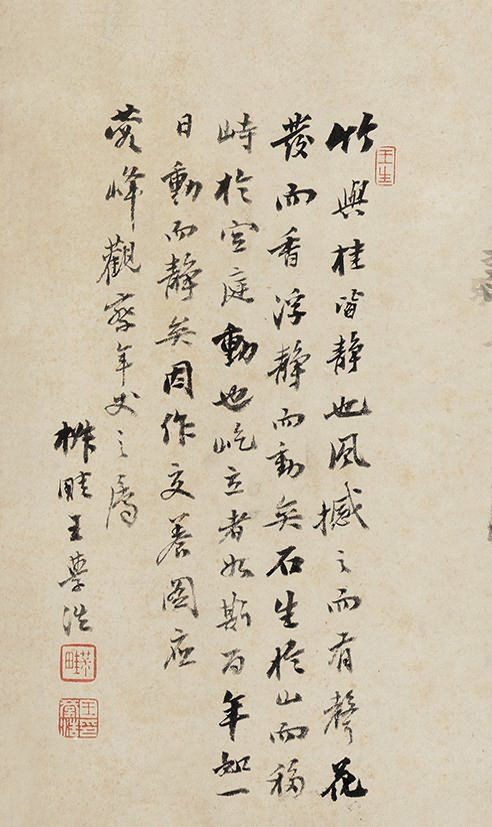 王生
竹與桂皆靜也風撼之而有聲花
發而香浮靜而動矣石生於山而移
峙於空庭動也屹立者如斯百年如一
日動而靜矣因作交養圖應
蓉峰觀察年丈之屬
椒畦王學浩
椒畦